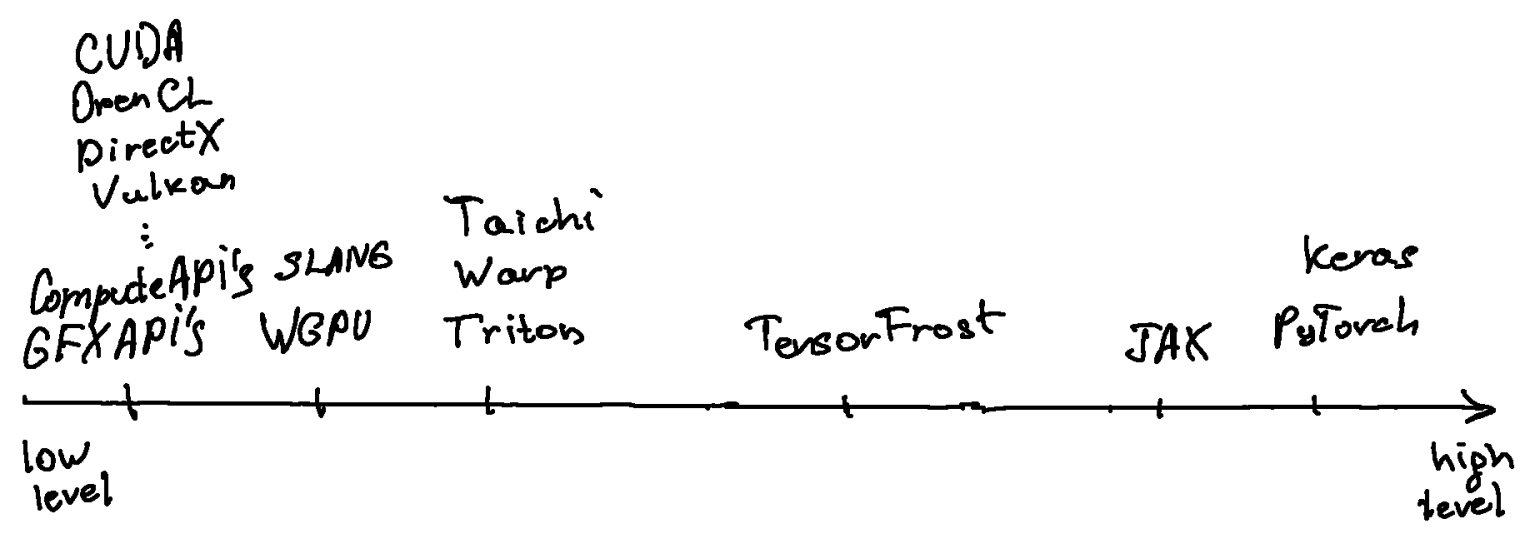 CUDA
OpenCL
DirectX
Vulkan
:
ComputeAPi's
GFXAPi's
SLANG
WGPU
Taichi
Warp
Triton
TensorFrost
JAX
Keras
PyTorch
low
level
high
level